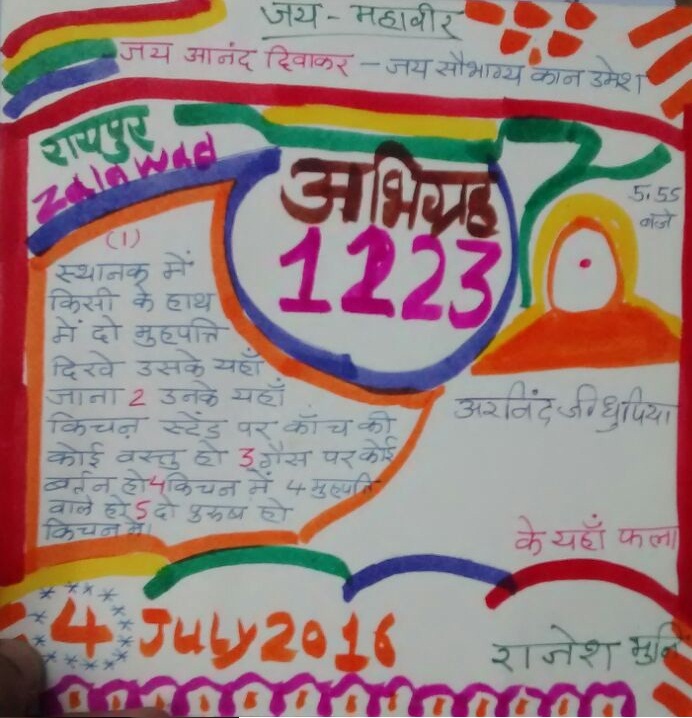 जय - महावीर
जय आनंद दिवाकर - जय सौभाग्य कान उमेश
रायपुर
Zalawad
अभिग्रह
1223
5.55
बजे
(1)
स्थानक में
किसी के हाथ
में दो मुहपत्ति
दिखे उसके यहाँ
जाना 2 उनके यहाँ
किचन स्टेंड पर काँच की
कोई वस्तु हो 3 गैस पर कोई
बर्तन हो 4 किचन में 4 मुहपत्ति
वाले हो 5 दो पुरुष हो
किचन में।
अरविंद जी धुपिया
के यहाँ फला
4 July 2016
राजेश मुनि